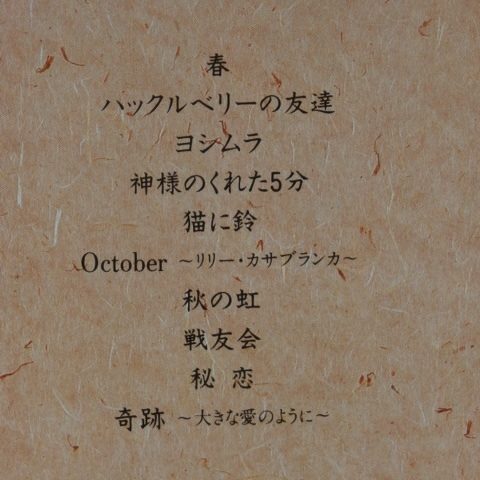 春
ハックルベリーの友達
ヨシムラ
神様のくれた5分
猫に鈴
October ～リリー・カサブランカ～
秋の虹
戦友会
秘 恋
奇跡 ～大きな愛のように～